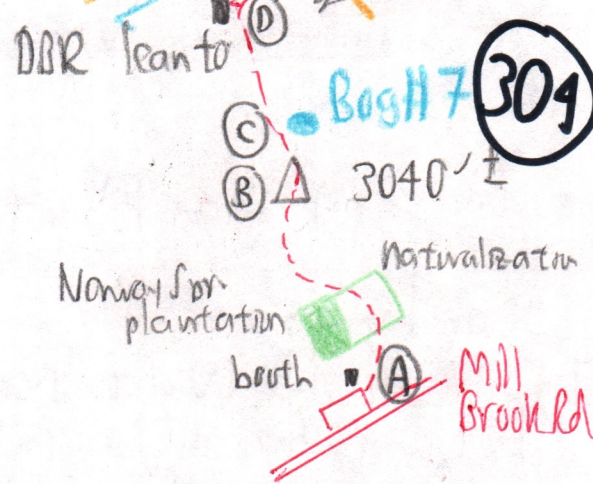 D
DBR lean to
Bog H 7
304
C
B
3040' ±
naturalization
Norway Spr.
plantation
booth
A
Mill
Brook Rd